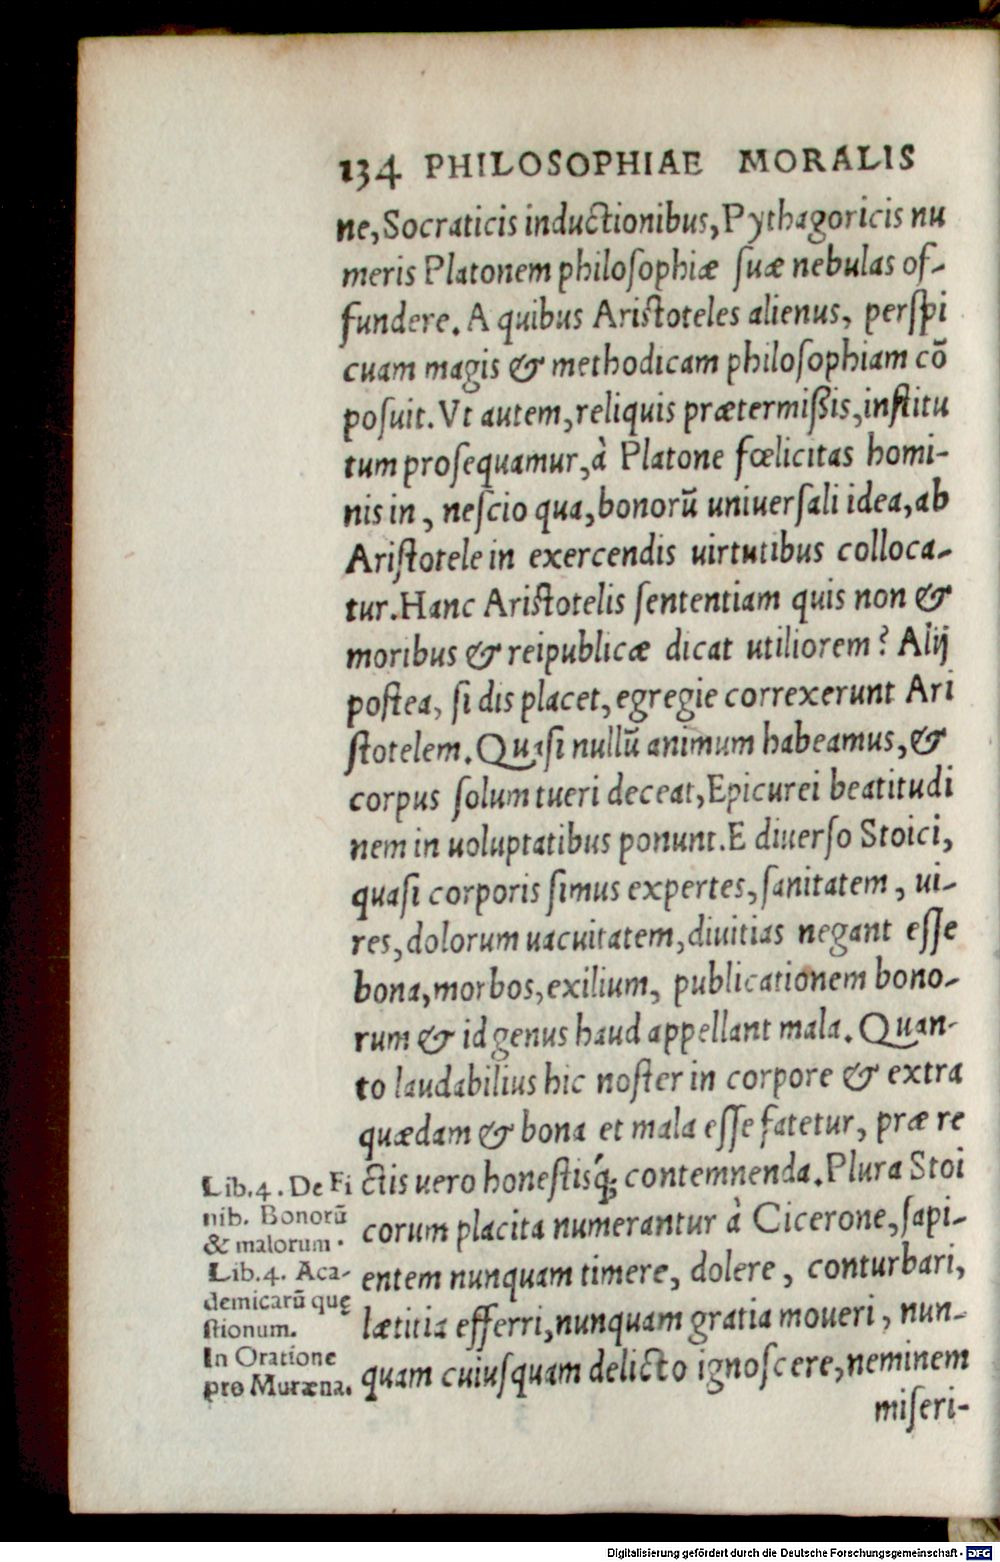 134 PHILOSOPHIAE MORALIS
ne, Socraticis inductionibus, Pythagoricis nu
meris Platonem philoſophiæ ſuæ nebulas of-
fundere. A quibus Ariſtoteles alienus, perſpi
cuam magis & methodicam philoſophiam cō
poſuit. Vt autem, reliquis prætermiſſis, inſtitu
tum proſequamur, à Platone fœlicitas homi-
nis in, neſcio qua, bonorū uniuerſali idea, ab
Ariſtotele in exercendis uirtutibus colloca-
tur. Hanc Ariſtotelis ſententiam quis non &
moribus & reipublicæ dicat utiliorem? Alij
poſtea, ſi dis placet, egregie correxerunt Ari
ſtotelem. Quaſi nullū animum habeamus, &
corpus ſolum tueri deceat, Epicurei beatitudi
nem in uoluptatibus ponunt. E diuerſo Stoici,
quaſi corporis ſimus expertes, ſanitatem, ui-
res, dolorum uacuitatem, diuitias negant eſſe
bona, morbos, exilium, publicationem bono-
rum & id genus haud appellant mala. Quan-
to laudabilius hic noſter in corpore & extra
quædam & bona et mala eſſe fatetur, præ re
ctis uero honeſtisq́; contemnenda. Plura Stoi
corum placita numerantur à Cicerone, ſapi-
entem nunquam timere, dolere, conturbari,
lætitia efferri, nunquam gratia moueri, nun-
quam cuiuſquam delicto ignoſcere, neminem
miſeri-
Lib.4. De Fi
nib. Bonorū
& malorum.
Lib.4. Aca-
demicarū quę
ſtionum.
In Oratione
pro Muræna.
Digitalisierung gefördert durch die Deutsche Forschungsgemeinschaft - DFG